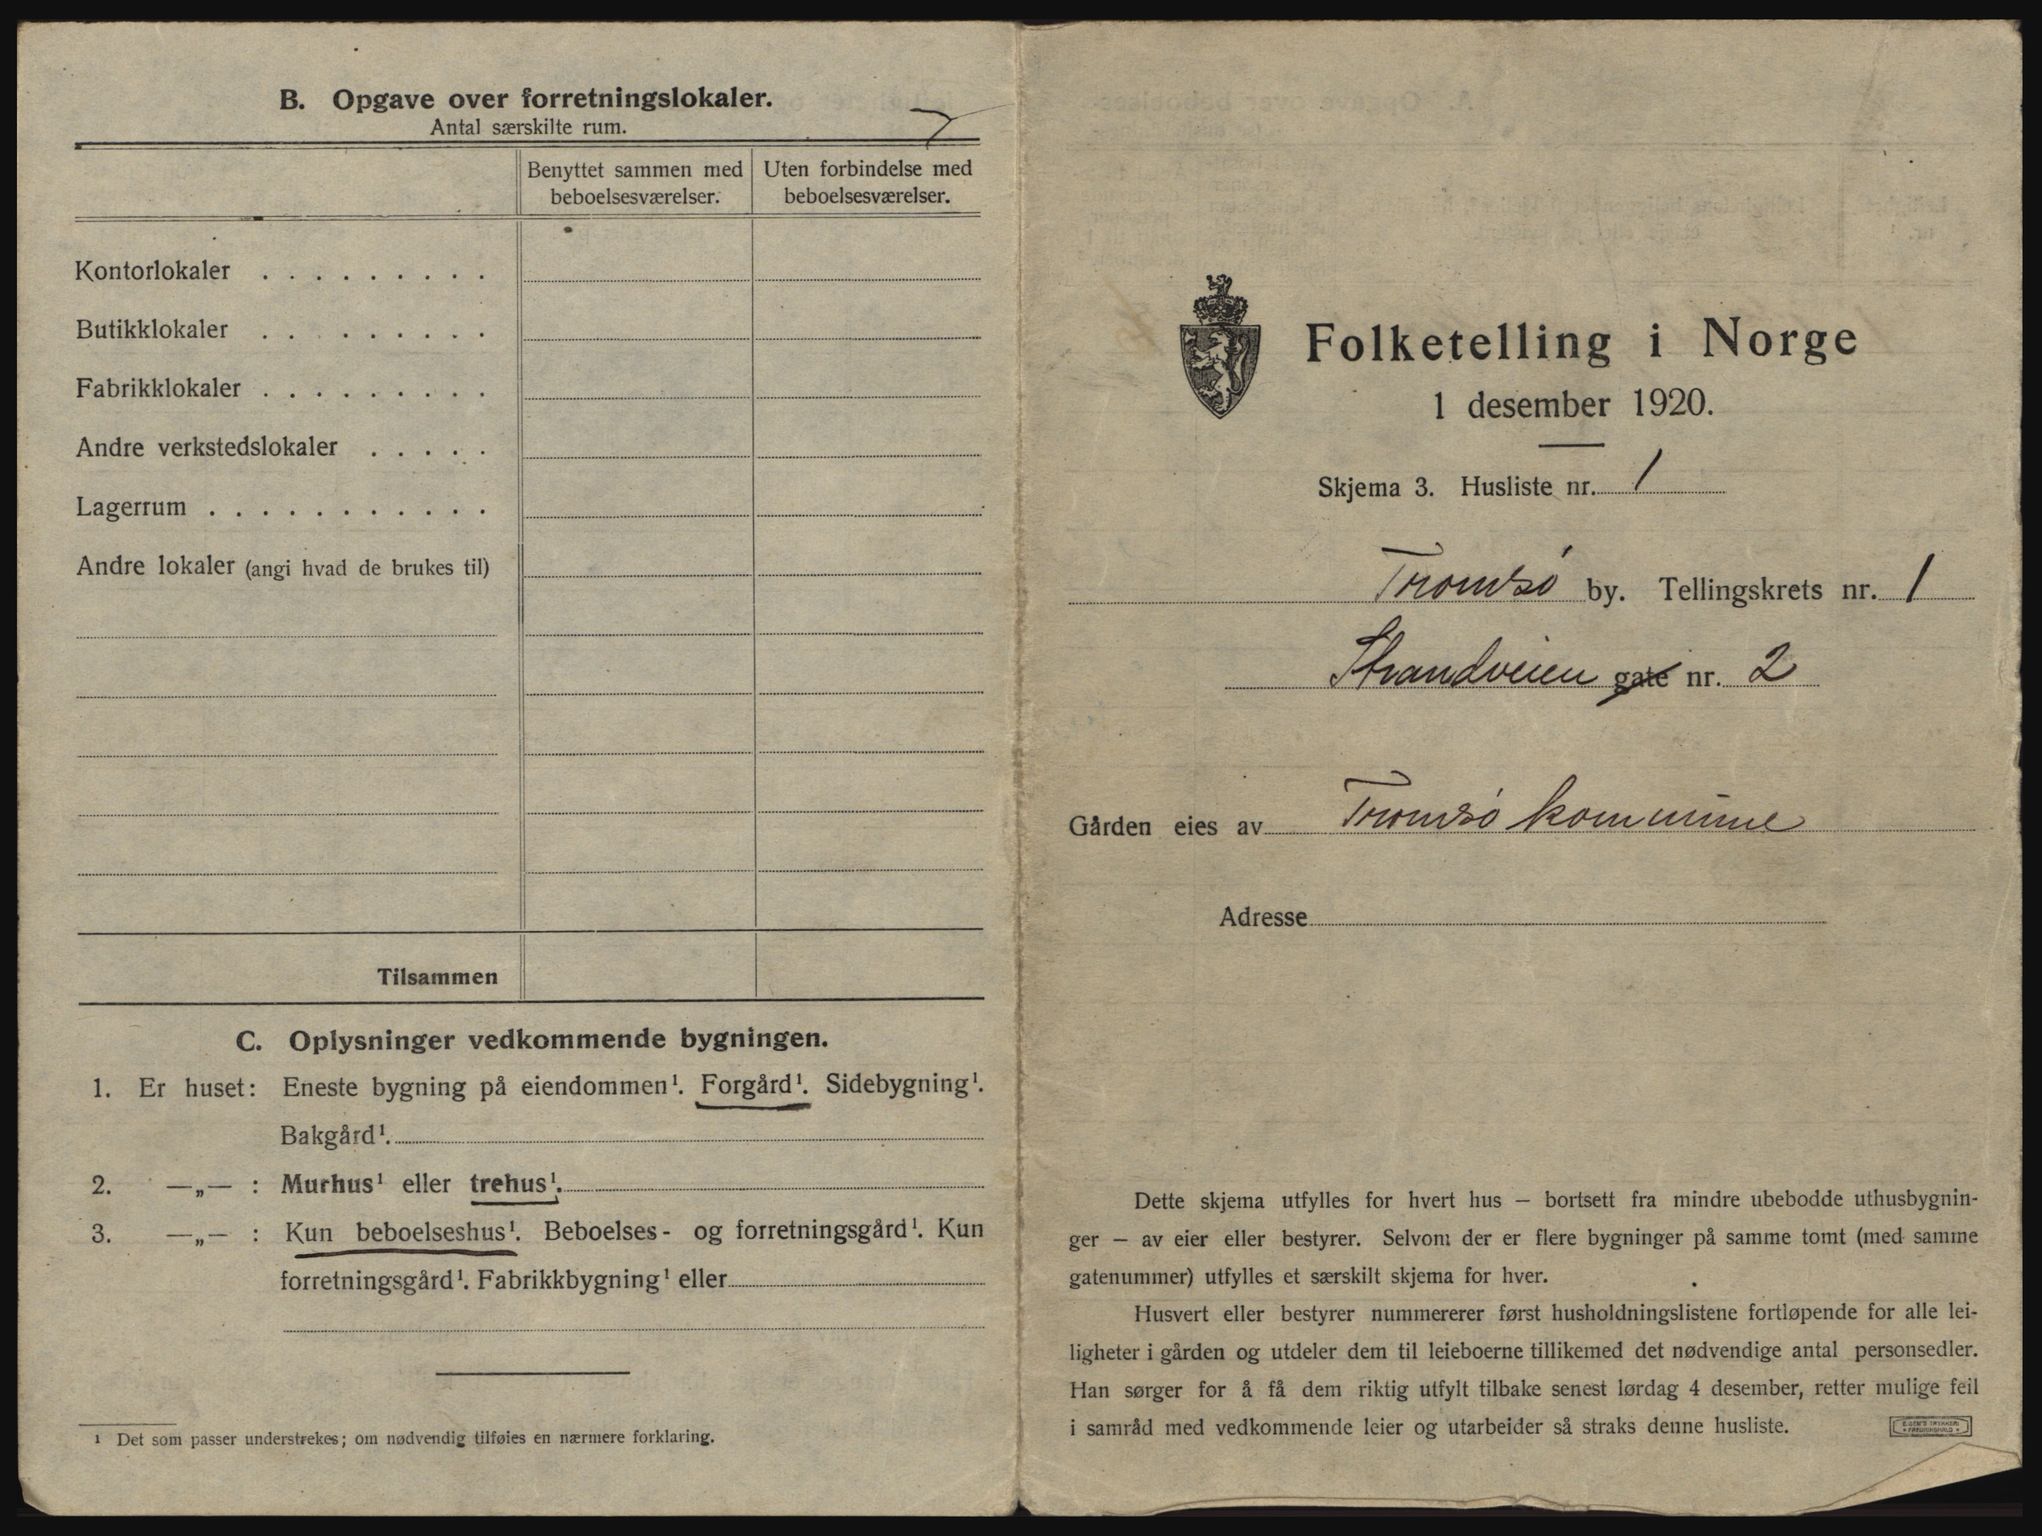 B. Opgave over forretningslokaler.
Antal særskilte rum.
7
Benyttet sammen med beboelsesværelser.
Uten forbindelse med beboelsesværelser.
Kontorlokaler . . . . . . . . .
Butikklokaler . . . . . . . . .
Fabrikklokaler . . . . . . . . .
Andre verkstedslokaler . . . . .
Lagerrum . . . . . . . . . . .
Andre lokaler (angi hvad de brukes til)
Tilsammen
C. Oplysninger vedkommende bygningen.
1. Er huset: Eneste bygning på eiendommen¹. Forgård¹. Sidebygning¹.
Bakgård¹.
2. —„— : Murhus¹ eller trehus¹.
3. —„— : Kun beboelseshus¹. Beboelses- og forretningsgård¹. Kun
forretningsgård¹. Fabrikkbygning¹ eller
¹ Det som passer understrekes; om nødvendig tilføies en nærmere forklaring.
Folketelling i Norge
1 desember 1920.
Skjema 3. Husliste nr. 1
Tromsø by. Tellingskrets nr. 1
Strandveien gate nr. 2
Gården eies av Tromsø kommune
Adresse
Dette skjema utfylles for hvert hus – bortsett fra mindre ubebodde uthusbygnin-
ger – av eier eller bestyrer. Selvom der er flere bygninger på samme tomt (med samme
gatenummer) utfylles et særskilt skjema for hver.
Husvert eller bestyrer nummererer først husholdningslistene fortløpende for alle lei-
ligheter i gården og utdeler dem til leieboerne tillikemed det nødvendige antal personsedler.
Han sørger for å få dem riktig utfylt tilbake senest lørdag 4 desember, retter mulige feil
i samråd med vedkommende leier og utarbeider så straks denne husliste.